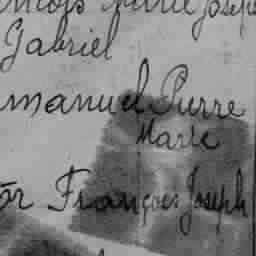 Marie Joseph
Gabriel
Pierre
Marie
François Joseph